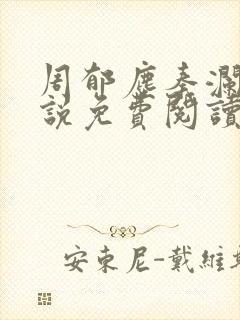 周郁鹿秦瀾
説免費閱讀
安東尼-戴維斯